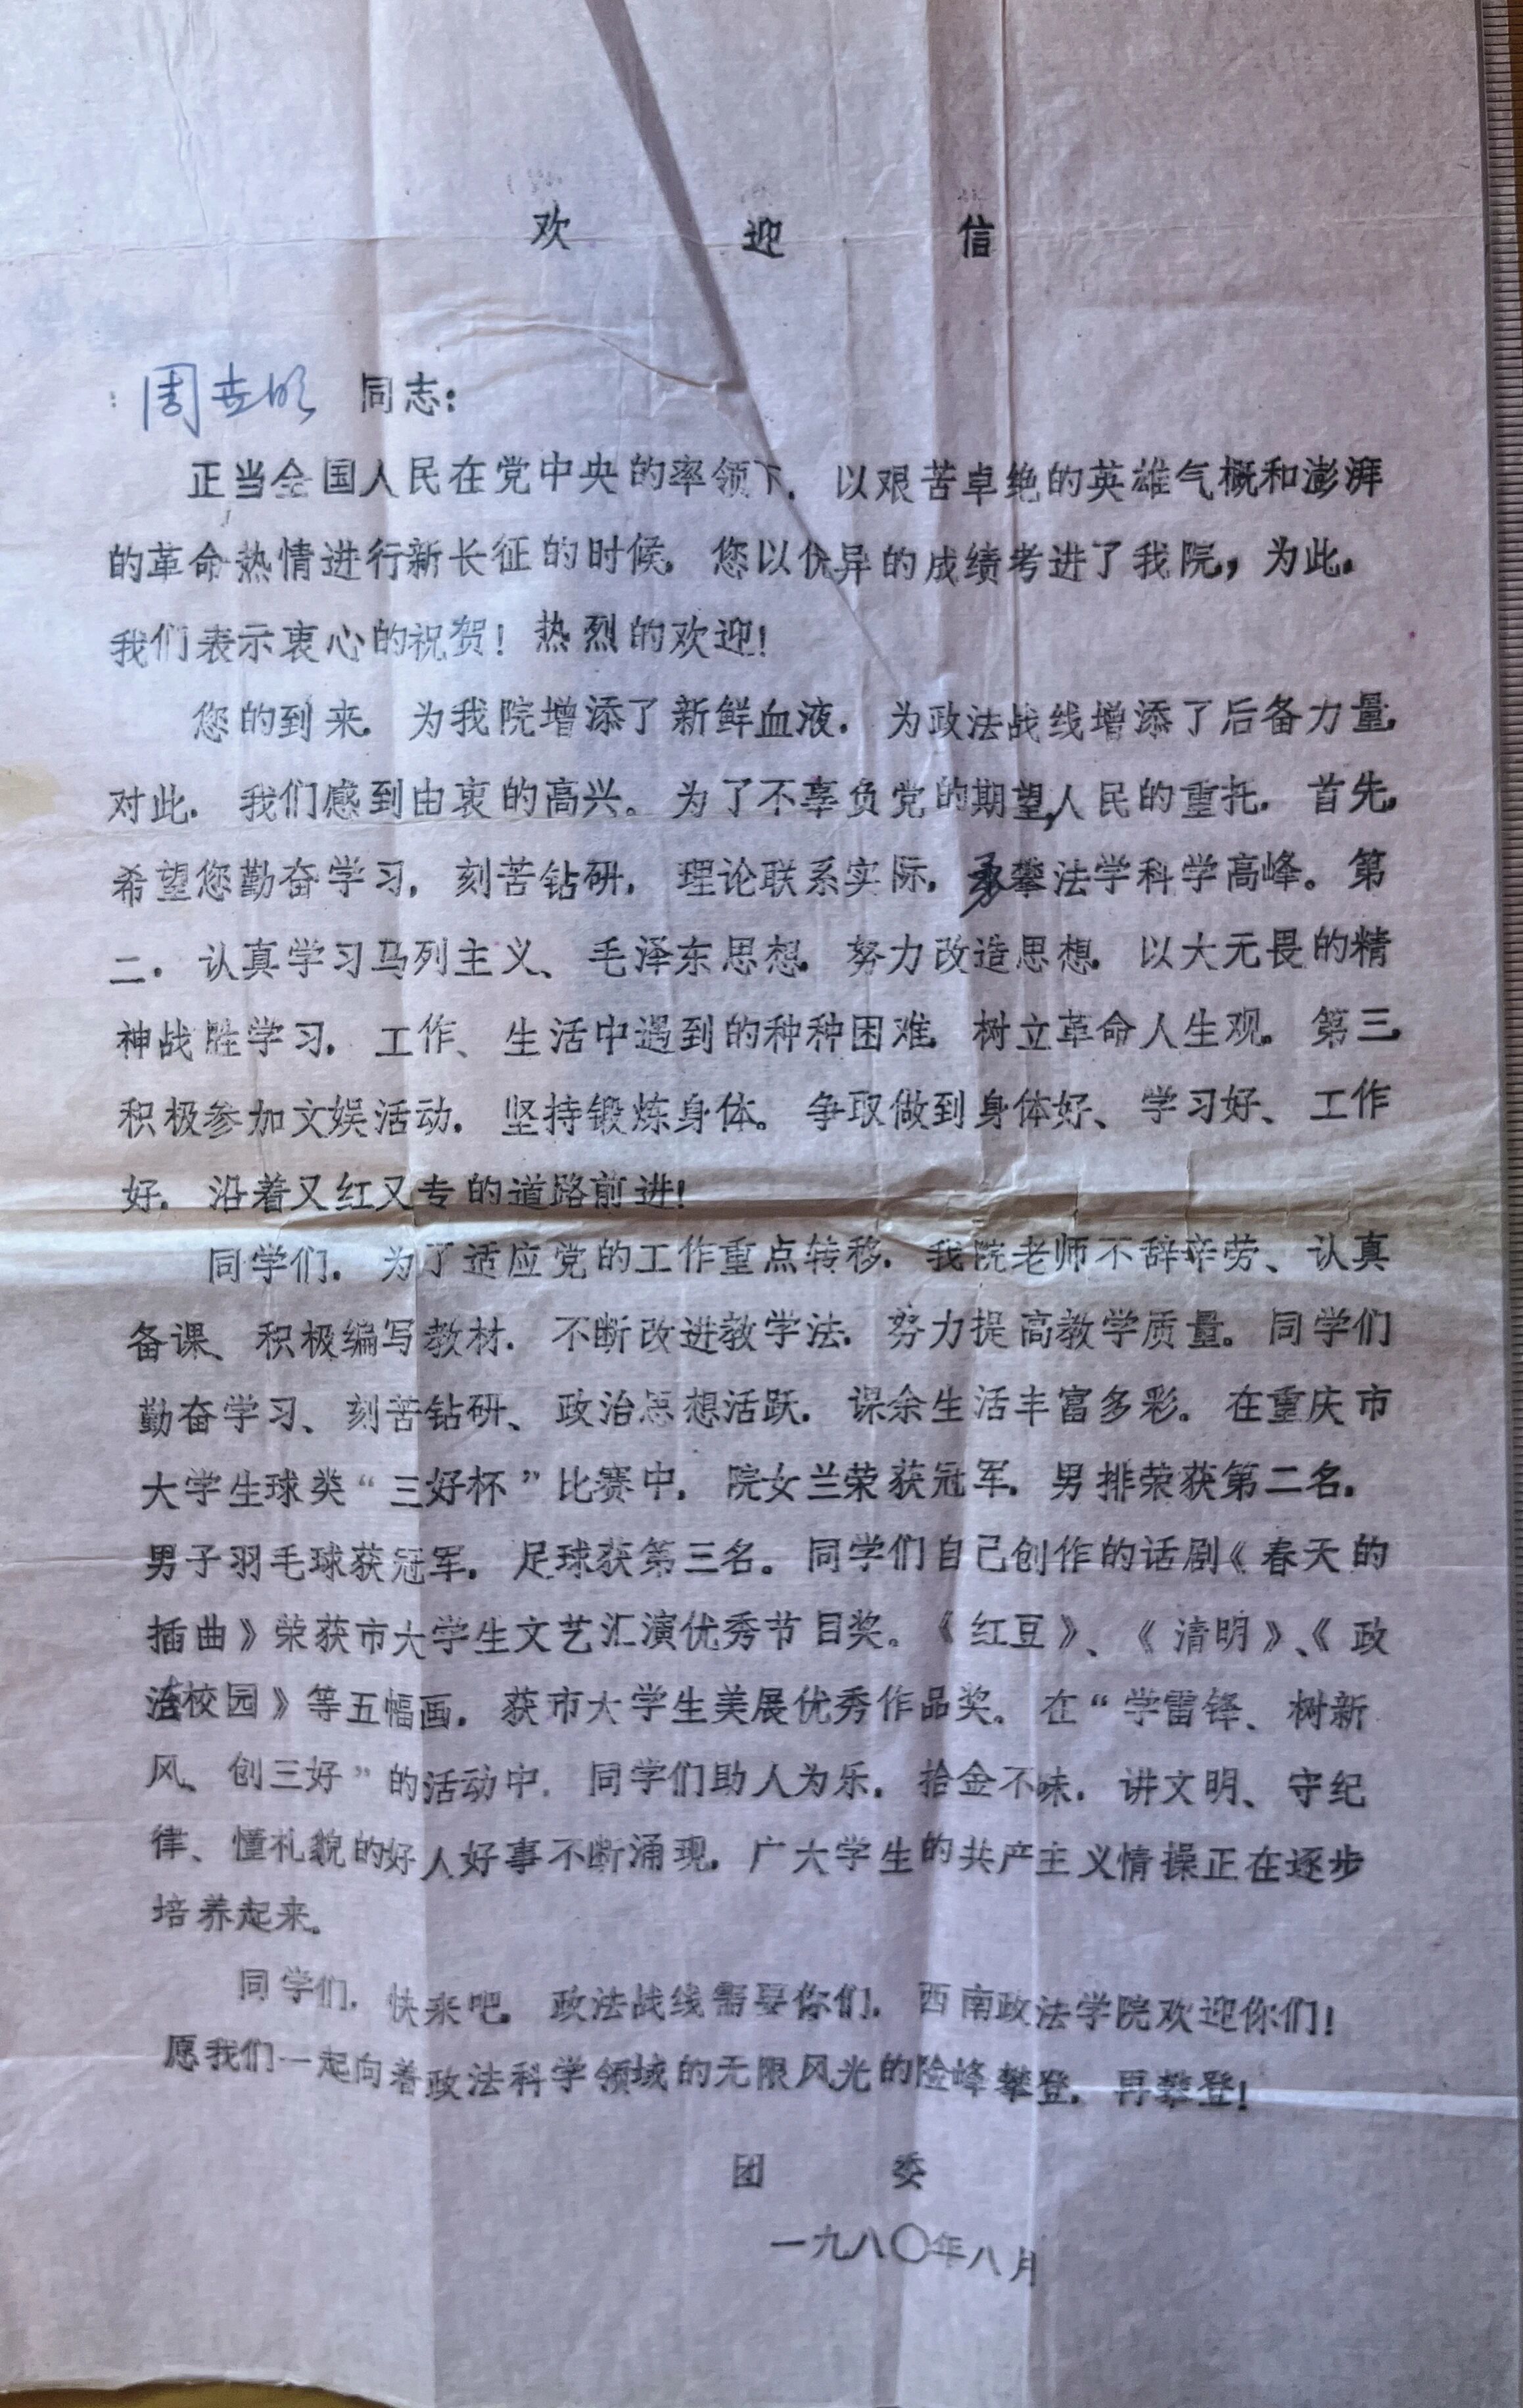 欢 迎 信
周 同志：
正当全国人民在党中央的率领下，以艰苦卓绝的英雄气概和澎湃
的革命热情进行新长征的时候，您以优异的成绩考进了我院，为此，
我们表示衷心的祝贺！热烈的欢迎！
您的到来，为我院增添了新鲜血液，为政法战线增添了后备力量，
对此，我们感到由衷的高兴。为了不辜负党的期望，人民的重托，首先，
希望您勤奋学习，刻苦钻研，理论联系实际，攀法学科学高峰。第
二，认真学习马列主义、毛泽东思想，努力改造思想，以大无畏的精
神战胜学习，工作、生活中遇到的种种困难，树立革命人生观。第三，
积极参加文娱活动，坚持锻炼身体。争取做到身体好、学习好、工作
好，沿着又红又专的道路前进！
同学们，为了适应党的工作重点转移，我院老师不辞辛劳、认真
备课、积极编写教材，不断改进教学法，努力提高教学质量。同学们
勤奋学习、刻苦钻研、政治思想活跃，课余生活丰富多彩。在重庆市
大学生球类“三好杯”比赛中，院女兰荣获冠军，男排荣获第二名，
男子羽毛球获冠军，足球获第三名。同学们自己创作的话剧《春天的
插曲》荣获市大学生文艺汇演优秀节目奖。《红豆》、《清明》、《政
法校园》等五幅画，获市大学生美展优秀作品奖。在“学雷锋、树新
风、创三好”的活动中，同学们助人为乐，拾金不昧，讲文明、守纪
律、懂礼貌的好人好事不断涌现，广大学生的共产主义情操正在逐步
培养起来。
同学们，快来吧，政法战线需要你们，西南政法学院欢迎你们！
愿我们一起向着政法科学领域的无限风光的险峰攀登，再攀登！
团 委
一九八〇年八月